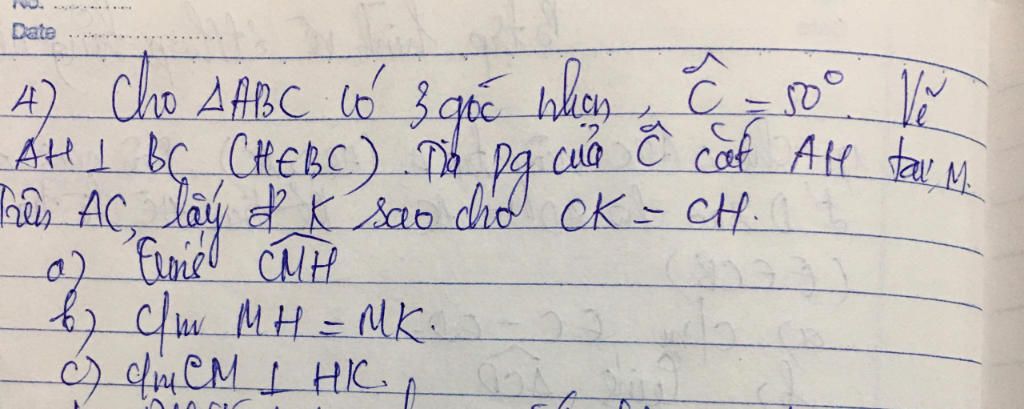 No. ............
Date ........................
4) Cho ΔABC có 3 góc nhọn, Ĉ = 50°. Vẽ
AH ⊥ BC (H∈BC). Tia pg của Ĉ cắt AH tại M.
Trên AC, lấy đ K sao cho CK = CH.
a) Tính CMH
b) c/m MH = MK.
c) c/m CM ⊥ HK.